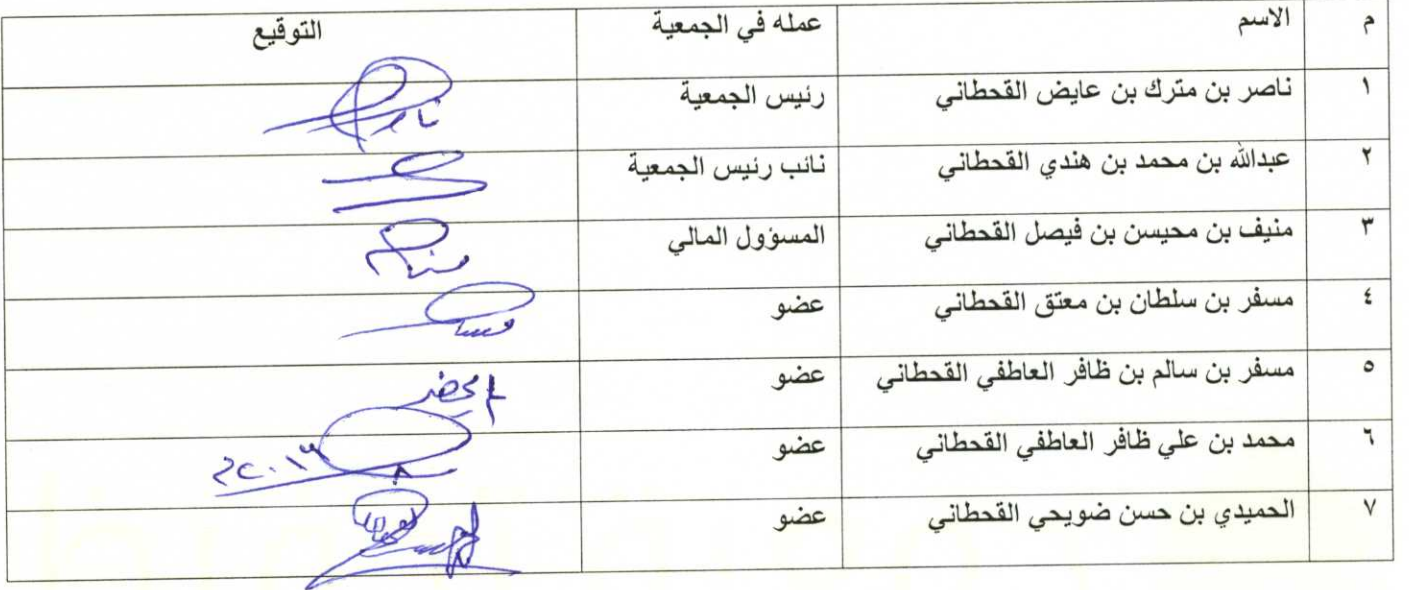 م الاسم عمله في الجمعية التوقيع
١ ناصر بن مترك بن عايض القحطاني رئيس الجمعية
٢ عبدالله بن محمد بن هندي القحطاني نائب رئيس الجمعية
٣ منيف بن محيسن بن فيصل القحطاني المسؤول المالي
٤ مسفر بن سلطان بن معتق القحطاني عضو
٥ مسفر بن سالم بن ظافر العاطفي القحطاني عضو لم يحضر
٦ محمد بن علي ظافر العاطفي القحطاني عضو
٧ الحميدي بن حسن ضويحي القحطاني عضو